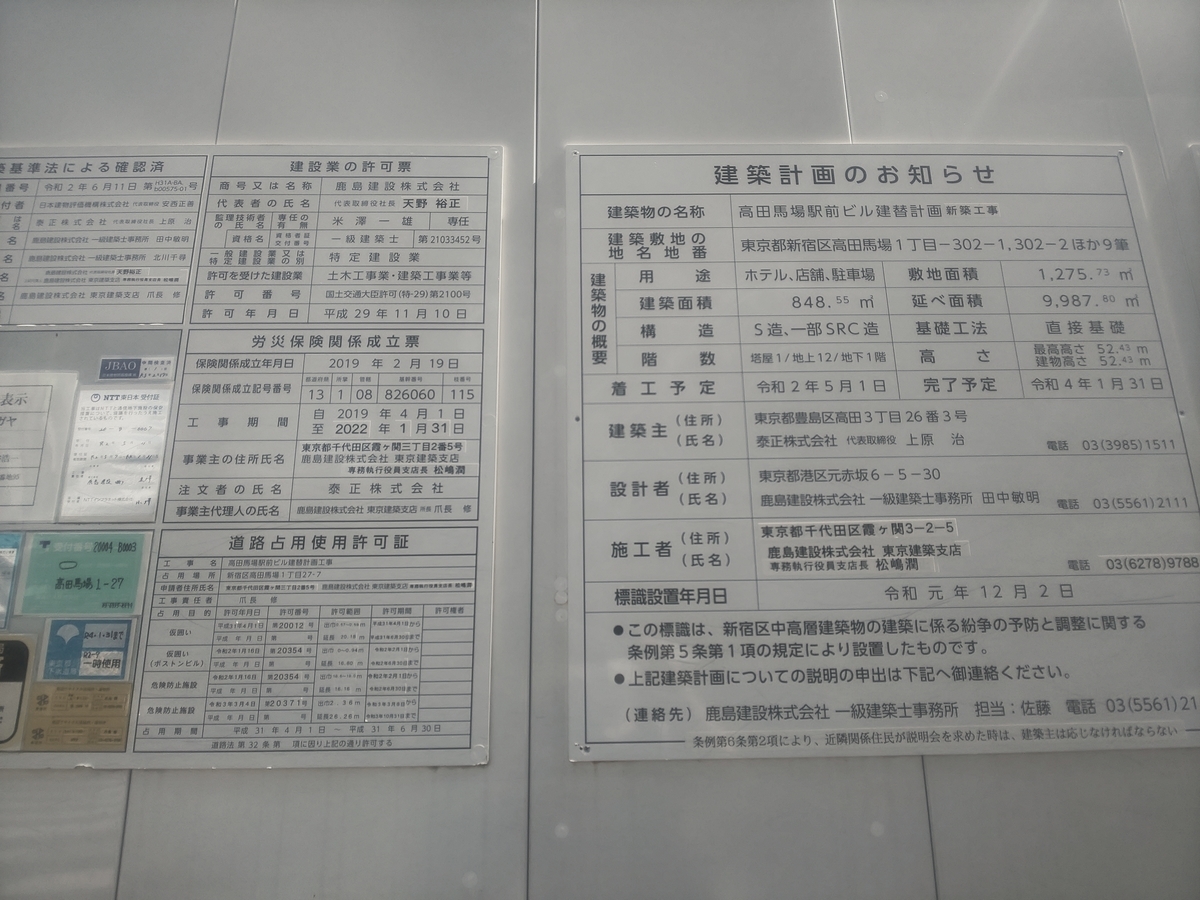 築基準法による確認済
番号 令和2年6月11日 第H31A-BA.b00575-01号
付者 日本建物評価機構株式会社 代表取締役 安西正善
泰正株式会社 代表取締役社長 上原 治
名 鹿島建設株式会社 一級建築士事務所 田中敏明
名 鹿島建設株式会社 一級建築士事務所 北川千尋
名 天野裕正
名 鹿島建設株式会社 東京建築支店 爪長 修
建設業の許可票
商号又は名称 鹿島建設株式会社
代表者の氏名 代表取締役社長 天野 裕正
監理技術者の氏名 専任の有無 米澤一雄 専任
資格名 資格者証交付番号 一級建築士 第21033452号
一般建設業又は特定建設業の別 特定建設業
許可を受けた建設業 土木工事業・建築工事業等
許可番号 国土交通大臣許可(特-29)第2100号
許可年月日 平成29年11月10日
労災保険関係成立票
保険関係成立年月日 2019 年 2月 19日
保険関係成立記号番号 府県 所掌 管轄 基幹番号 枝番号
13 1 08 826060 115
工事期間 自 2019 年 4月 1日
至 2022 年 1月 31日
事業主の住所氏名 東京都千代田区霞ヶ関三丁目2番5号
鹿島建設株式会社 東京建築支店
専務執行役員支店長 松嶋潤
注文者の氏名 泰正株式会社
事業主代理人の氏名 鹿島建設株式会社 東京建築支店 所長 爪長 修
JBAO
表示
NTT東日本 受付証
受付番号 20004 B0003
高田馬場1-27
一時使用
道路占用使用許可証
工事名 高田馬場駅前ビル建替計画工事
占用場所 新宿区高田馬場1丁目27-7
申請者住所氏名 東京都千代田区霞ヶ関三丁目2番5号 鹿島建設株式会社 東京建築支店 専務執行役員支店長 松嶋潤
工事責任者 爪長 修
占用目的 許可年月日 許可番号 許可範囲 許可期間 許可権者
仮囲い 平成31年4月1日 第20012号 平成31年4月1日から
平成 年 月 日 第 号 平成31年6月30日まで
仮囲い(ポストンビル) 令和2年1月16日 第20354号 令和2年2月1日から
平成 年 月 日 第 号 令和2年6月30日まで
危険防止施設 令和2年1月16日 第20354号 令和2年2月1日から
平成 年 月 日 第 号 令和2年6月30日まで
危険防止施設 令和3年7月4日 第20371号
平成 年 月 日 第 号 令和3年10月31日まで
占用期間 平成 31年 4月 1日 ～ 平成 31年 6月 30日
道路法 第32条 第 項に因り上記の通り許可する
建築計画のお知らせ
建築物の名称 高田馬場駅前ビル建替計画 新築工事
建築敷地の地名地番 東京都新宿区高田馬場1丁目−302−1,302−2ほか9筆
建築物の概要
用途 ホテル、店舗、駐車場 敷地面積 1,275.73 ㎡
建築面積 848.55 ㎡ 延べ面積 9,987.80 ㎡
構造 S造、一部SRC造 基礎工法 直接基礎
階数 塔屋1/地上12/地下1階 高さ 最高高さ 52.43 m
建物高さ 52.43 m
着工予定 令和2年5月1日 完了予定 令和4年1月31日
建築主 (住所) 東京都豊島区高田3丁目26番3号
(氏名) 泰正株式会社 代表取締役 上原 治 電話 03(3985)1511
設計者 (住所) 東京都港区元赤坂6−5−30
(氏名) 鹿島建設株式会社 一級建築士事務所 田中敏明 電話 03(5561)2111
施工者 (住所) 東京都千代田区霞ヶ関3−2−5
(氏名) 鹿島建設株式会社 東京建築支店
専務執行役員支店長 松嶋潤 電話 03(6278)9788
標識設置年月日 令和元年12月2日
●この標識は、新宿区中高層建築物の建築に係る紛争の予防と調整に関する
条例第5条第1項の規定により設置したものです。
●上記建築計画についての説明の申出は下記へ御連絡ください。
(連絡先) 鹿島建設株式会社 一級建築士事務所 担当:佐藤 電話 03(5561)21
条例第6条第2項により、近隣関係住民が説明会を求めた時は、建築主は応じなければならない